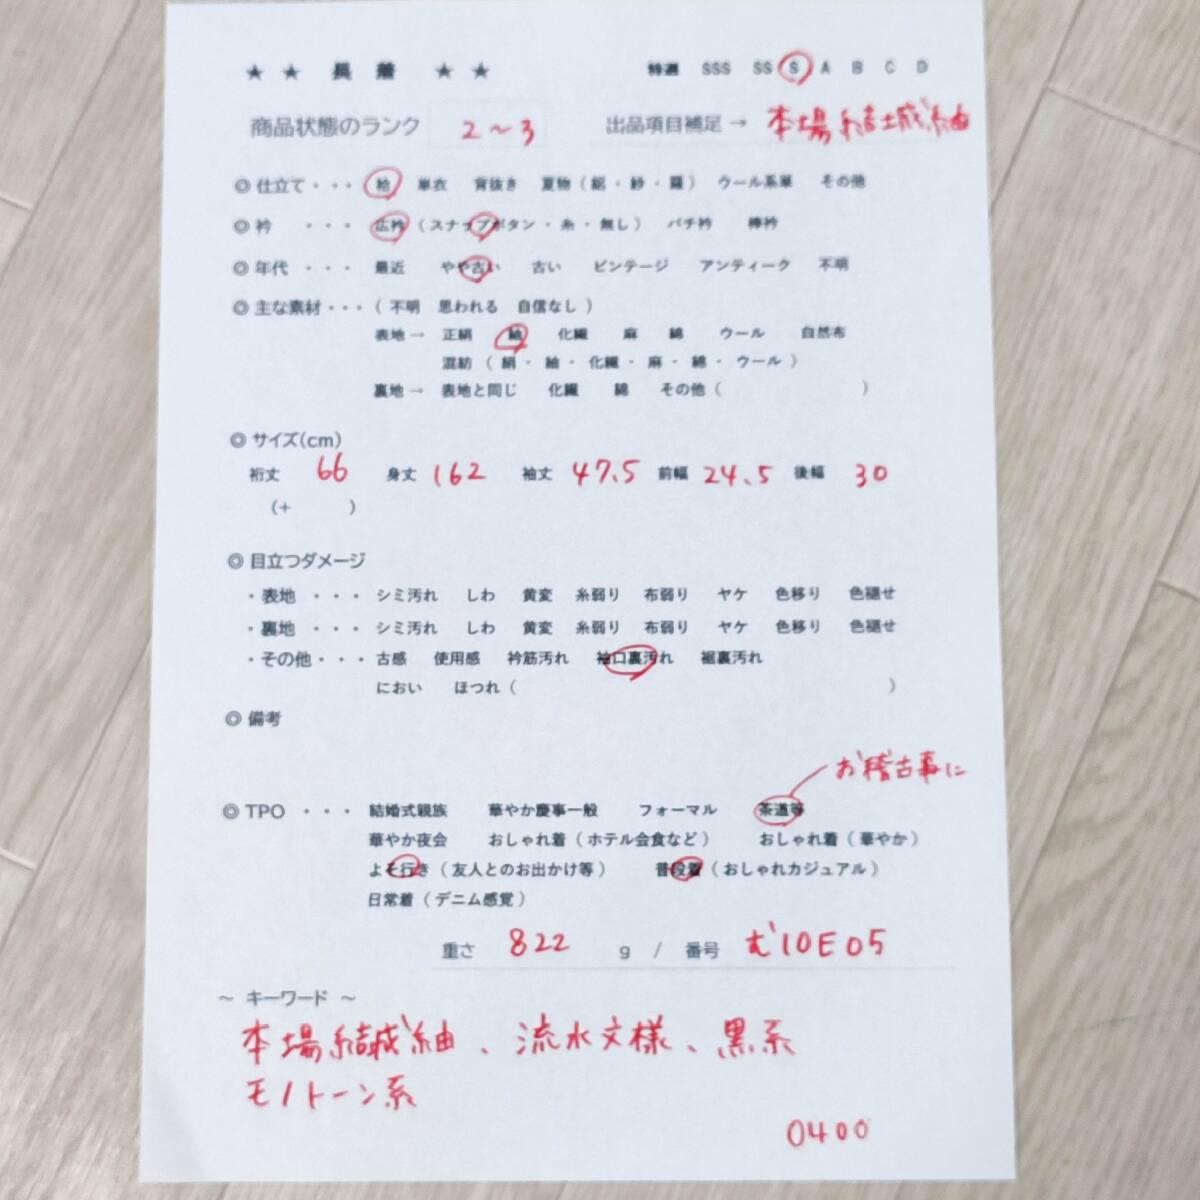 ★ ★ 長 着 ★ ★ 特選 SSS SS S A B C D
商品状態のランク 2〜3 出品項目補足→ 本場結城紬
◎ 仕立て・・・ 袷 単衣 背抜き 夏物（絽・紗・羅） ウール系単 その他
◎ 衿 ・・・ 広衿（スナップボタン・糸・無し） バチ衿 棒衿
◎ 年代 ・・・ 最近 やや古い 古い ビンテージ アンティーク 不明
◎ 主な素材・・・（ 不明 思われる 自信なし ）
表地→ 正絹 紬 化繊 麻 綿 ウール 自然布
混紡（ 絹・紬・化繊・麻・綿・ウール ）
裏地→ 表地と同じ 化繊 綿 その他（ ）
◎ サイズ(cm)
裄丈 66 身丈 162 袖丈 47.5 前幅 24.5 後幅 30
（+ ）
◎ 目立つダメージ
・表地 ・・・ シミ汚れ しわ 黄変 糸弱り 布弱り ヤケ 色移り 色褪せ
・裏地 ・・・ シミ汚れ しわ 黄変 糸弱り 布弱り ヤケ 色移り 色褪せ
・その他・・・ 古感 使用感 衿筋汚れ 袖口裏汚れ 裾裏汚れ
におい ほつれ（ ）
◎ 備考
お稽古事に
◎ TPO ・・・ 結婚式親族 華やか慶事一般 フォーマル 茶道等
華やか夜会 おしゃれ着（ホテル会食など） おしゃれ着（華やか）
よそ行き（友人とのお出かけ等） 普段着（おしゃれカジュアル）
日常着（デニム感覚）
重さ 822 g / 番号 む'10E05
〜 キーワード 〜
本場結城紬、流水文様、黒系
モノトーン系
0400